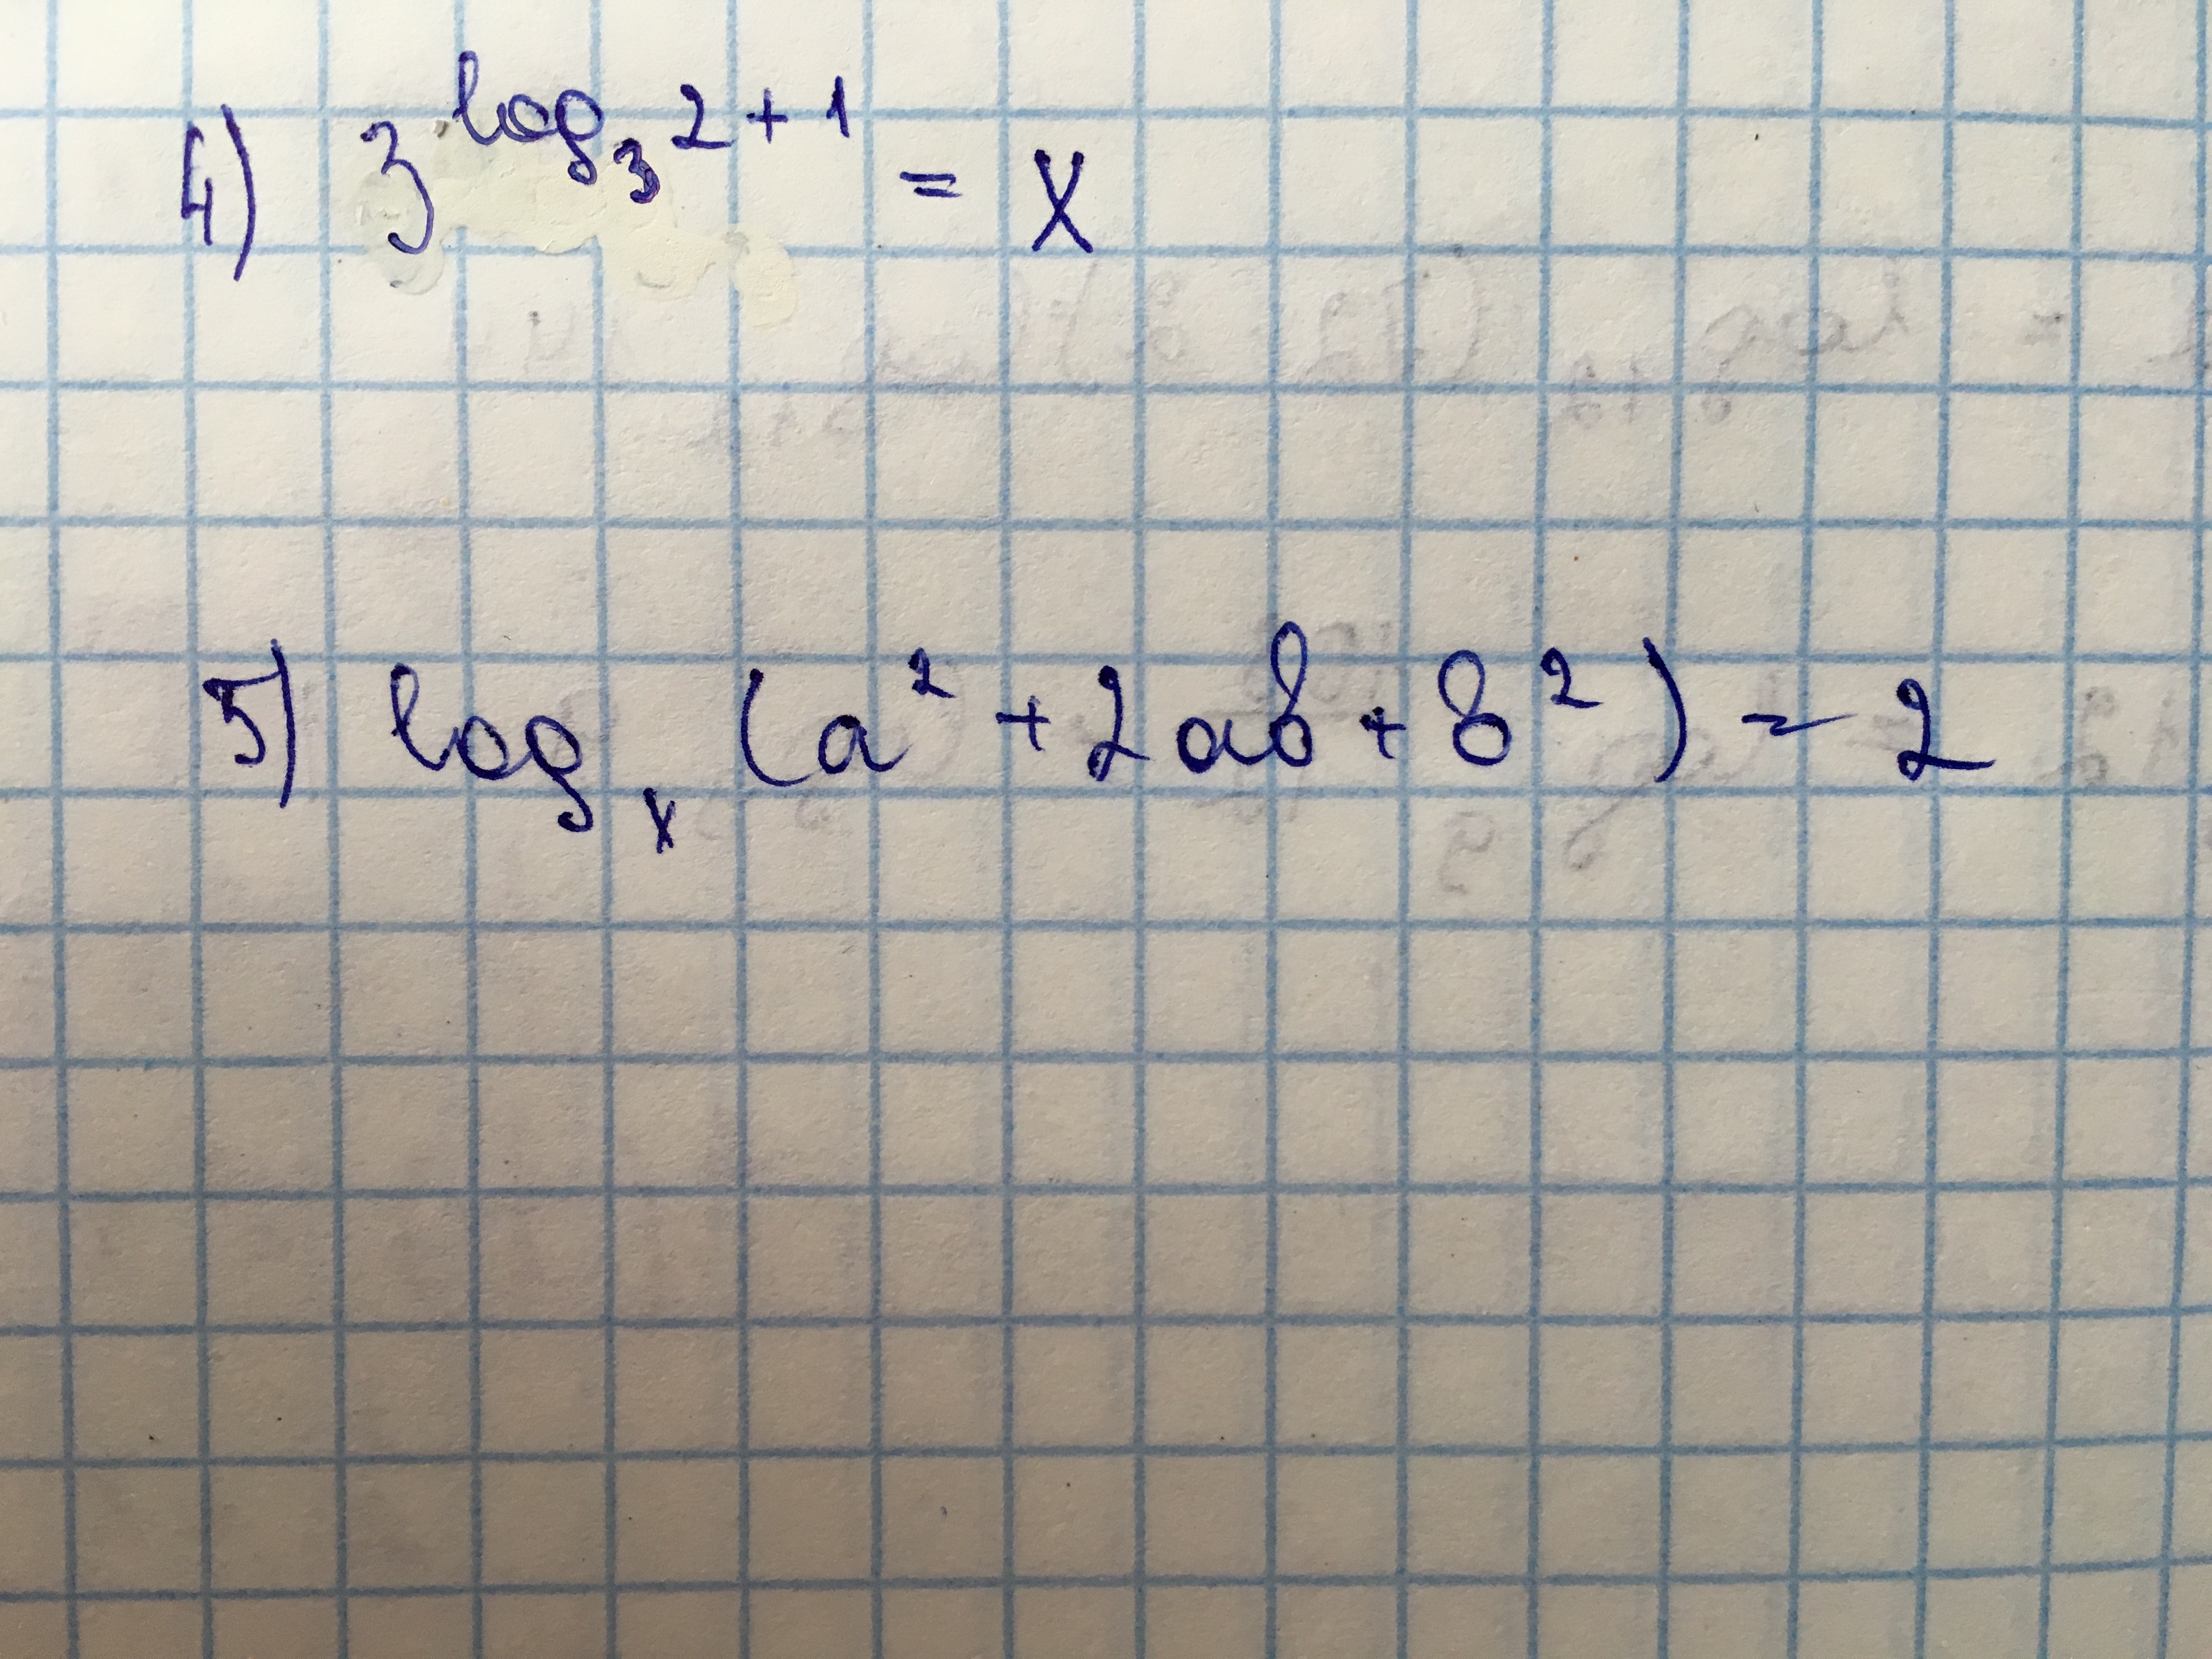 4) 3^{log_3 2 + 1} = x
5) log_x (a² + 2ab + b²) = 2